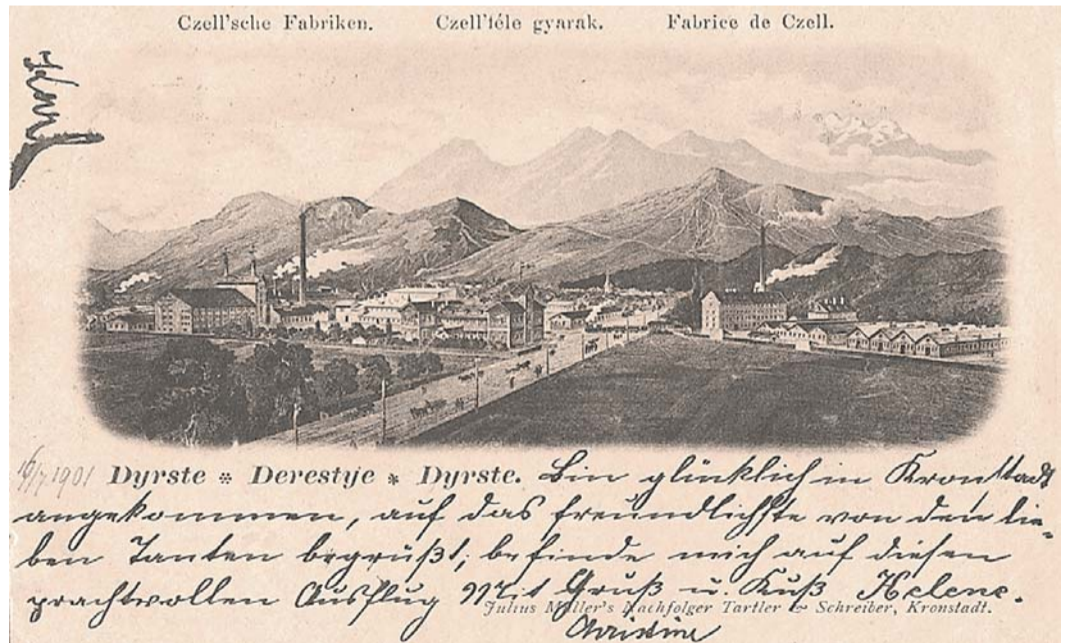 Czell'sche Fabriken. Czell'féle gyárak. Fabrice de Czell.
16/7 1901 Dyrste * Derestye * Dyrste. Bin glücklich in Kronstadt
angekommen, auf das freundlichste von den lie-
ben Tanten begrüßt; befinde mich auf diesen
prachtvollen Ausflug Mit Gruß u. Kuß Helene.
Julius Müller's Nachfolger Tartler & Schreiber, Kronstadt.
Christine